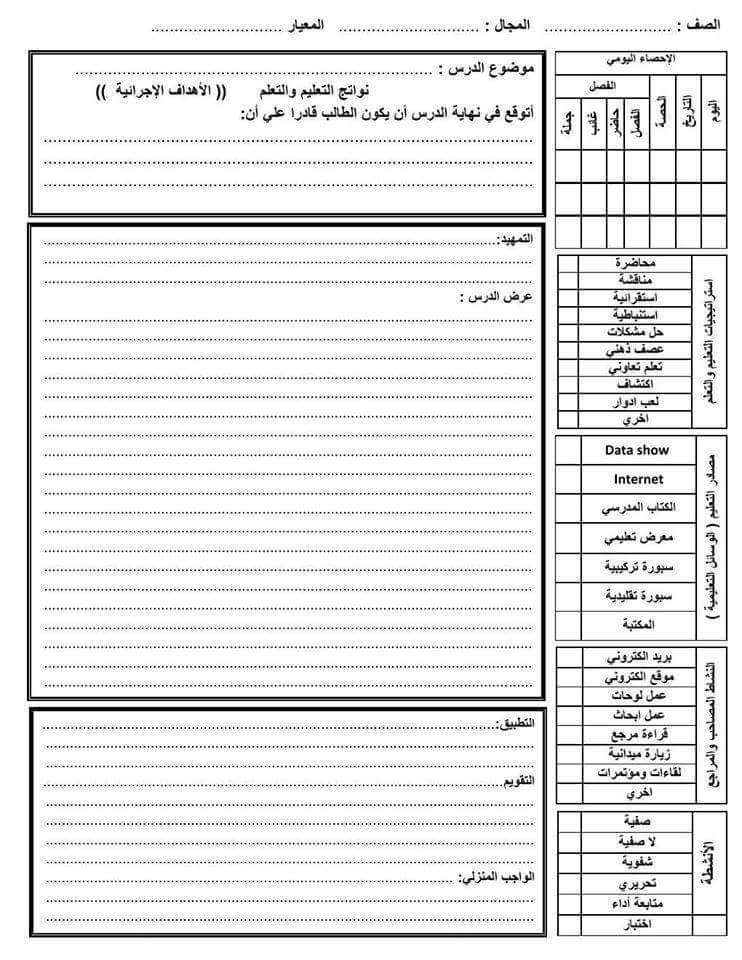 الصف : ............................ المجال : ............................... المعيار .............................
الإحصاء اليومي
الفصل
اليوم
التاريخ
الحصة
الفصل
حاضر
غائب
جملة
موضوع الدرس : ...............................................................................
نواتج التعليم والتعلم (( الأهداف الإجرائية ))
أتوقع في نهاية الدرس أن يكون الطالب قادرا علي أن:
استراتيجيات التعليم والتعلم
محاضرة
مناقشة
استقرائية
استنباطية
حل مشكلات
عصف ذهني
تعلم تعاوني
اكتشاف
لعب ادوار
اخري
مصادر التعليم ( الوسائل التعليمية )
Data show
Internet
الكتاب المدرسي
معرض تعليمي
سبورة تركيبية
سبورة تقليدية
المكتبة
النشاط المصاحب والمراجع
بريد الكتروني
موقع الكتروني
عمل لوحات
عمل ابحاث
قراءة مرجع
زيارة ميدانية
لقاءات ومؤتمرات
اخري
الأنشطة
صفية
لا صفية
شفوية
تحريري
متابعة أداء
اختبار
التمهيد:....................................................................................................
عرض الدرس :
التطبيق:....................................................................................................
التقويم....................................................................................................
الواجب المنزلي: ...........................................................................................